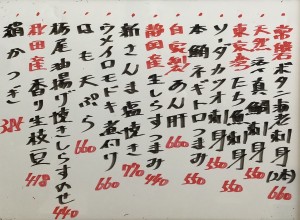 常磐ボタン海老刺身(2本) 660
天然真鯛刺身 550
東京湾たち魚刺身 550
ソーダカツオ刺身 550
本鮪ネギトロつまみ
自家製あん肝 660
静岡産生しらすつまみ 440
新さんま塩焼き 770
シマイロモドキ煮付け 660
はも天ぷら 660
栃尾油揚げ焼きしらすのせ 440
秋田産香り生枝豆 418
絹かつぎ